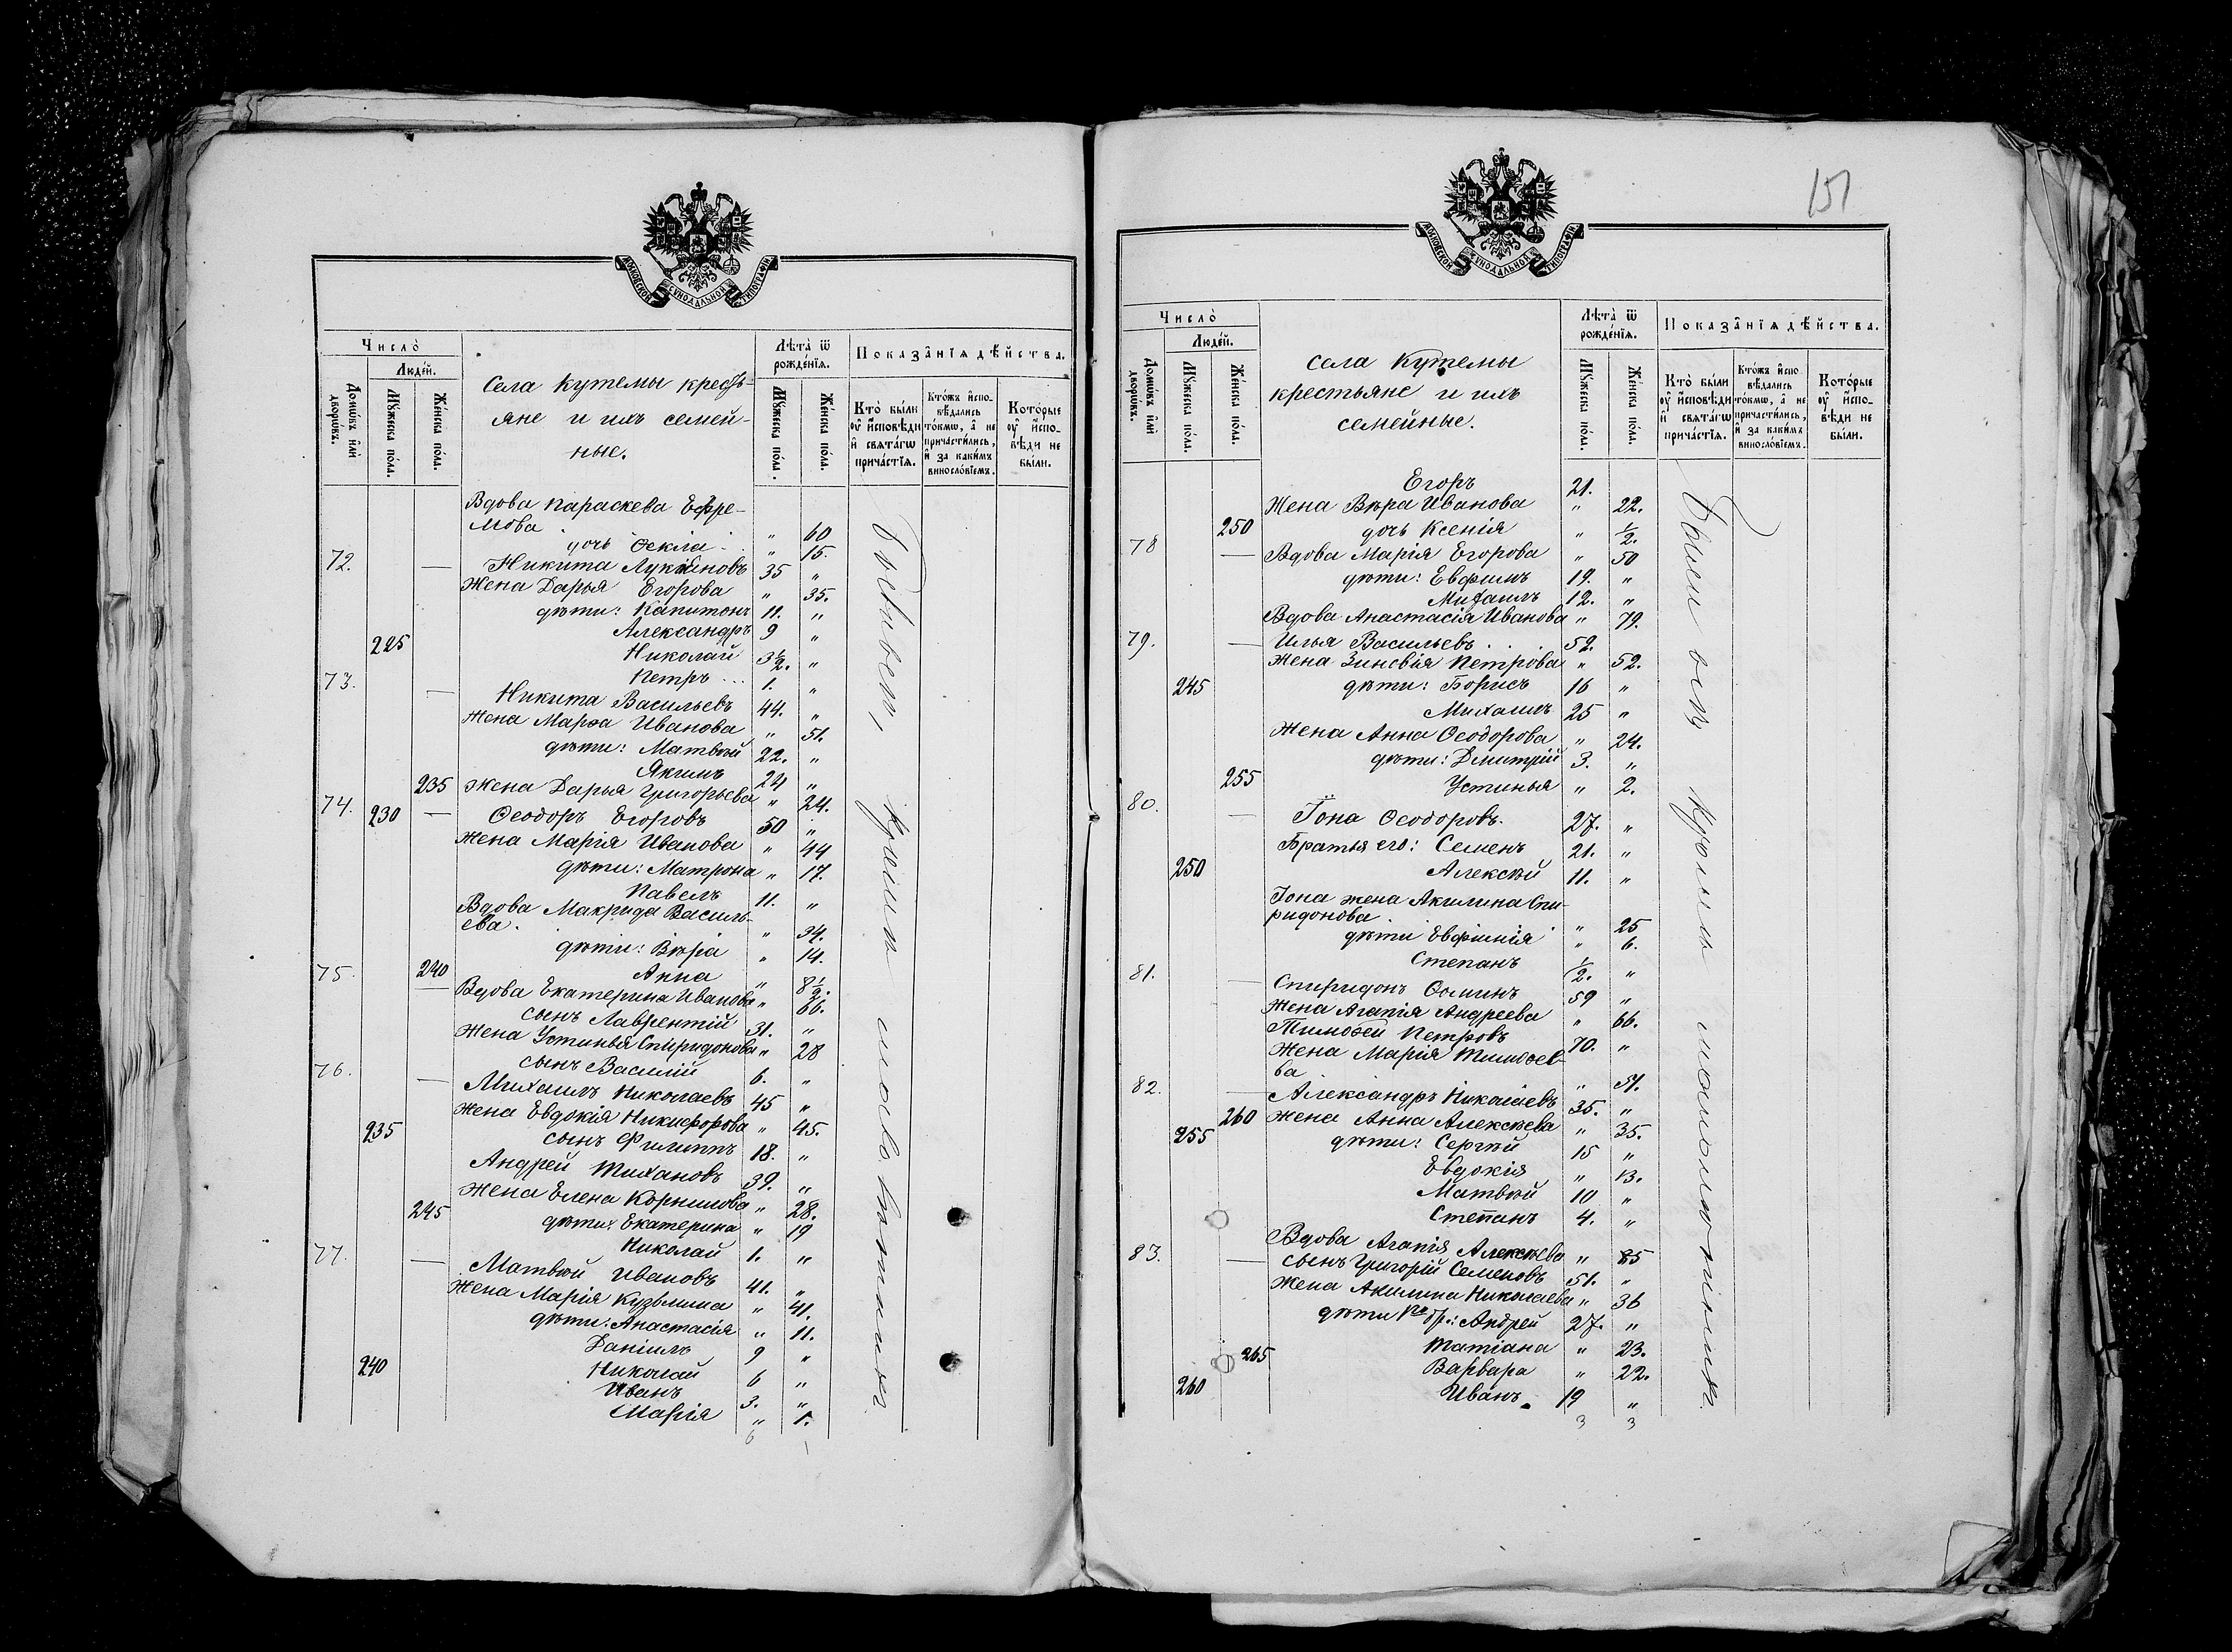 МОСКОВСКОЙ СѴНОДАЛЬНОЙ ТИПОГРАФІИ
Число̀
Люде́й.
Домѡ́въ и҆лѝ дворѡ́въ.
Мꙋ́жеска по́ла.
Же́нска по́ла.
Села Кутемы крестъ-
яне и ихъ семей-
ные.
Лѣта̀ ѿ рожде́нїѧ.
Мꙋ́жеска по́ла.
Же́нска по́ла.
Показа̂нїѧ дѣ́йства.
Кто̀ бы́ли ᲂу҆ и҆́споведи и҆ свѧта́гѡ прича́стїѧ.
Кто́жъ и҆спо-вѣ́дались то́кмѡ, а҆ не причасти́лись, и҆ за каки́мъ винosло́вїемъ.
Кото́рые ᲂу҆ и҆спо-вѣ́ди не бы́ли.
Вдова Параскева Ефре-
мова " 60
дочь Ѳекла " 15.
72. — Никита Лукіяновъ 35 "
Жена Дарья Егорова " 35.
дѣти: Капитонъ 11. "
Александръ 9 "
225 Николай 3½. "
Петръ ... 1. "
73. — Никита Васильевъ 44. "
Жена Марѳа Иванова " 51.
дѣти: Матвѣй 22. "
Якимъ 24 "
235 Жена Дарья Григорьева " 24.
74. 230 — Ѳеодоръ Егоровъ 50 "
Жена Марія Иванова " 44
дѣти: Матрона " 17.
Павелъ 11. "
Вдова Макрида Василь-
ева. " 34.
дѣти: Вѣра " 14.
240 Анна " 8½.
75. — Вдова Екатерина Иванова " 66.
сынъ Лаврентій 31. "
Жена Устинья Спиридонова " 28
сынъ Василій 6. "
76. — Михаилъ Николаевъ 45 "
Жена Евдокія Никифорова " 45.
235 сынъ Филиппъ 18. "
Андрей Тихановъ 39. "
Жена Елена Корнилова " 28.
245 дѣти: Екатерина " 19
Николай 1. "
77. — Матвѣй Ивановъ 41. "
Жена Марія Кузьмина " 41.
дѣти: Анастасія " 11.
Даніилъ 9 "
240 Николай 6 "
Иванъ 3. "
Марія " 1.
6 1
151
МОСКОВСКОЙ СѴНОДАЛЬНОЙ ТИПОГРАФІИ
Число̀
Люде́й.
Домѡ́въ и҆лѝ дворѡ́въ.
Мꙋ́жеска по́ла.
Же́нска по́ла.
Села Кутемы
крестьяне и ихъ
семейные.
Лѣта̀ ѿ рожде́нїѧ.
Мꙋ́жеска по́ла.
Же́нска по́ла.
Показа̂нїѧ дѣ́йства.
Кто̀ бы́ли ᲂу҆ и҆́споведи и҆ свѧта́гѡ прича́стїѧ.
Кто́жъ и҆спо-вѣ́дались то́кмѡ, а҆ не причасти́лись, и҆ за каки́мъ винosло́вїемъ.
Кото́рые ᲂу҆ и҆спо-вѣ́ди не бы́ли.
Егоръ 21.
Жена Вѣра Иванова " 22.
250 дочь Ксенія " ½.
78 — Вдова Марія Егорова " 50
дѣти: Евфимъ 19. "
Михаилъ 12. "
Вдова Анастасія Иванова " 79.
79. — Илья Васильевъ . . 52.
Жена Зиновія Петрова " 52.
245 дѣти: Борисъ 16 "
Михаилъ 25 "
Жена Анна Ѳеодорова " 24.
дѣти: Дмитрій 3. "
255 Устинья " 2.
80. — Іона Ѳеодоровъ. 27. "
Братья его: Семенъ 21. "
250 Алексѣй 11. "
Іона жена Акилина Спи-
ридонова " 25
дѣти Евфимія " 6.
Степанъ ½. "
81. — Спиридонъ Ѳоминъ 59 "
Жена Агапія Андреева " 66.
Тимоѳей Петровъ 70. "
Жена Марія Тимоѳее-
ва " 51.
82. — Александръ Николаевъ 35. "
260 Жена Анна Алексѣева " 35.
255 дѣти: Сергѣй 15 "
Евдокія " 13.
Матвѣй 10 "
Степанъ 4. "
Вдова Агапія Алексѣева " 85
83. — сынъ Григорій Семеновъ 51. "
Жена Акилина Николаева " 36
дѣти бр.: Андрей 27. "
265 Татіана " 23.
Варвара " 22.
260 Иванъ. 19 "
3 3
Были всѣ кромѣ малолѣтнихъ.